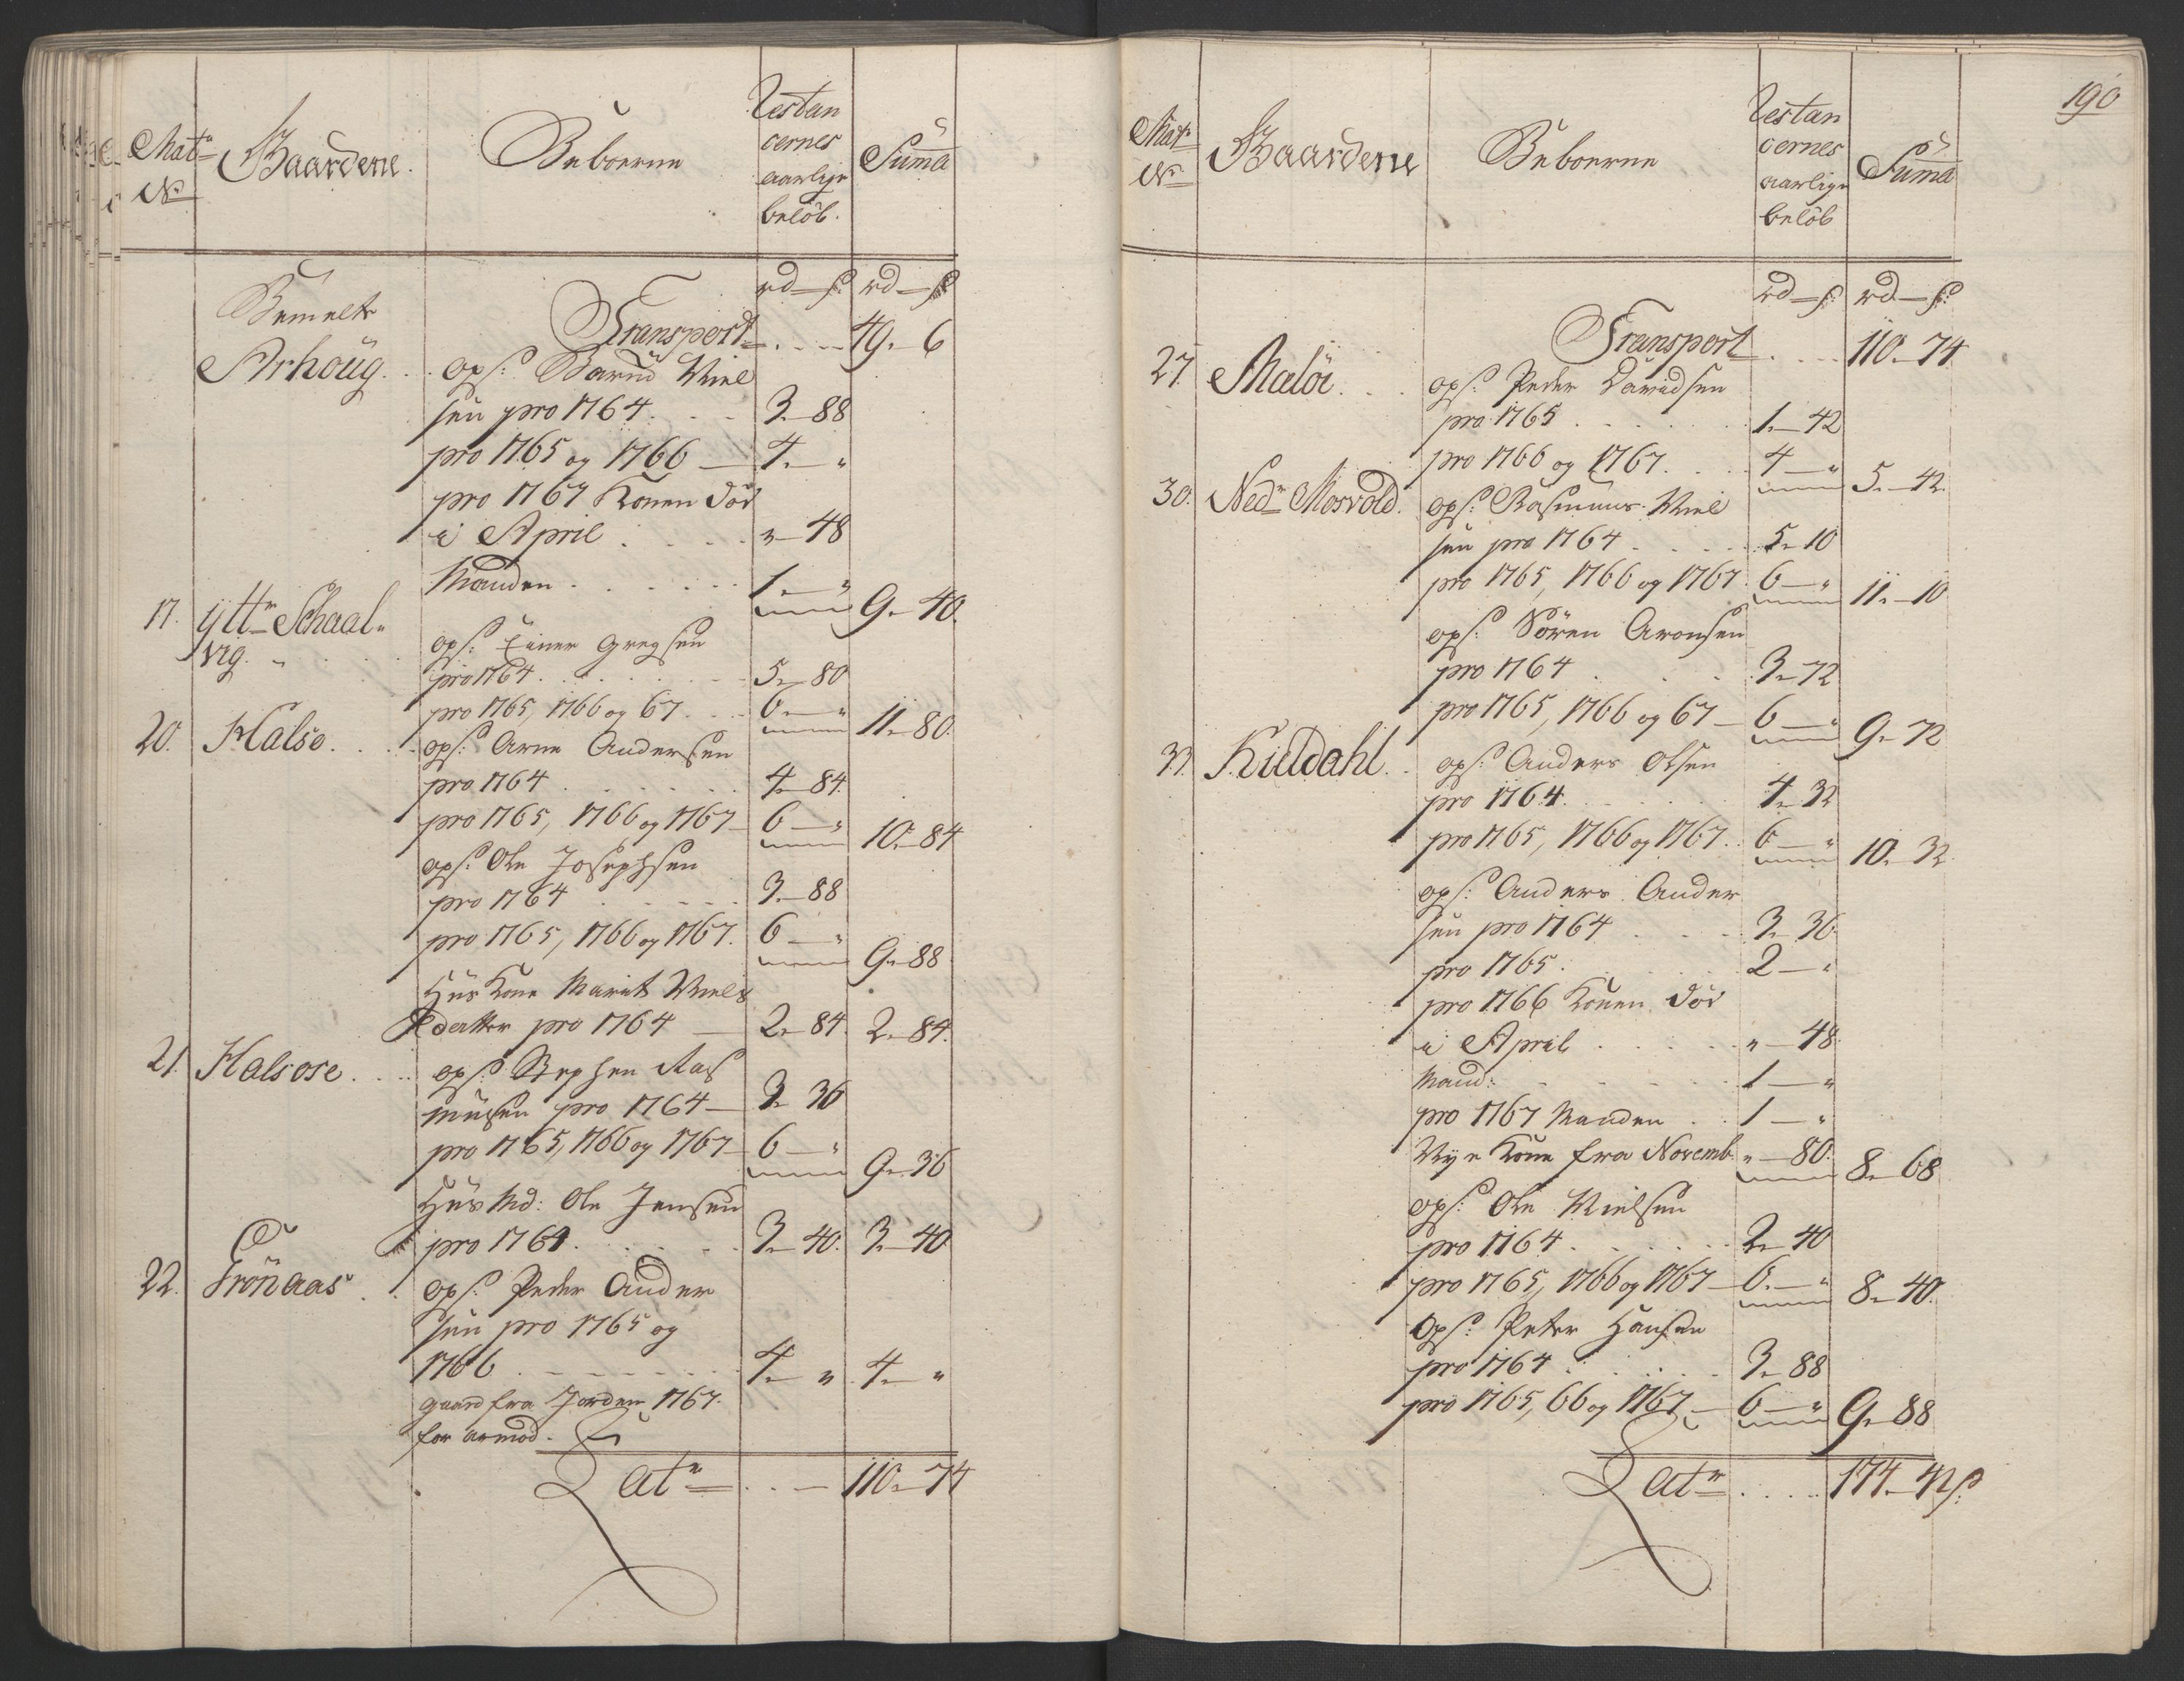 Matr
No
Gaardene.
Beboerne
Restan
cernes
aarlige
beløb.
Suma
rd — s. rd — s
Bemelte
Transport . . . 49. 6
Arhoug . . ops: Barud Niel
sen pro 1764 . . . 3. 88
pro 1765 og 1766 — 4. "
pro 1767 Konen død
i April . . . . " — 48
Manden . . . . . 1. " 9. 40.
17. Ytte Schaal-
vig. ops: Einer Gregsen
pro 1764 . . . . . 5. 80
pro 1765, 1766 og 67 . . . 6. " 11. 80.
20. Halse . . . ops: Arne Andersen
pro 1764 . . . . . 4. 84.
pro 1765, 1766 og 1767 6 — " 10. 84
ops: Ole Josephsen
pro 1764 . . . . . 3. 88
pro 1765, 1766 og 1767. 6 — " 9. 88
Huskone Marit Niels
datter pro 1764 — 2. 84. 2. 84.
21. Halsose . . . ops: Stephen Ras
musen pro 1764 — 3. 36
pro 1765, 1766 og 1767 6 — " 9. 36
Hus Md: Ole Jensen
pro 1764 . . . . . 3. 40. 3. 40
22. Grönaas . . ops: Peder Ander
sen pro 1765 og
1766 . . . . . . 4. " 4. "
gaard fra Jorden 1767.
for armod.
Latr . . . 110. 74
190
Matr
No
Gaardene
Beboerne
Restan
cernes
aarlige
beløb
Suma
rd — s: rd — s:
Transport . . . 110. 74.
27. Maløe . . . ops: Peder Davidsen
pro 1765 . . . . . 1. 42
pro 1766 og 1767 . . . 4 — " 5. 42.
30. Nedr Mosvold. ops: Rasmus Niel
sen pro 1764 . . . . 5. 10
pro 1765, 1766 og 1767. 6 — " 11. 10
ops: Søren Aronsen
pro 1764 . . . 3. 72
pro 1765, 1766 og 67 — 6 — " 9. 72
33. Kieldahl . . ops: Anders Olsen
pro 1764 . . . . . 4. 32
pro 1765, 1766 og 1767 . . 6 — " 10. 32.
ops: Anders Ander
sen pro 1764 . . . 3. 36.
pro 1765 . . . . . 2 — "
pro 1766 Konen død
i April . . . . . " — 48.
Mand: . . . . . 1 — "
pro 1767 Manden . . 1 — "
Nye Kone fra Novemb. " — 80. 8. 68
ops: Ole Nielsen
pro 1764 . . . . . 2. 40
pro 1765, 1766 og 1767 — 6. — " 8. 40.
ops: Peter Hansen
pro 1764 . . . . . 3. 88
pro 1765, 66 og 1767 — 6 — " 9. 88
Latr . . . . 174. 42 s: